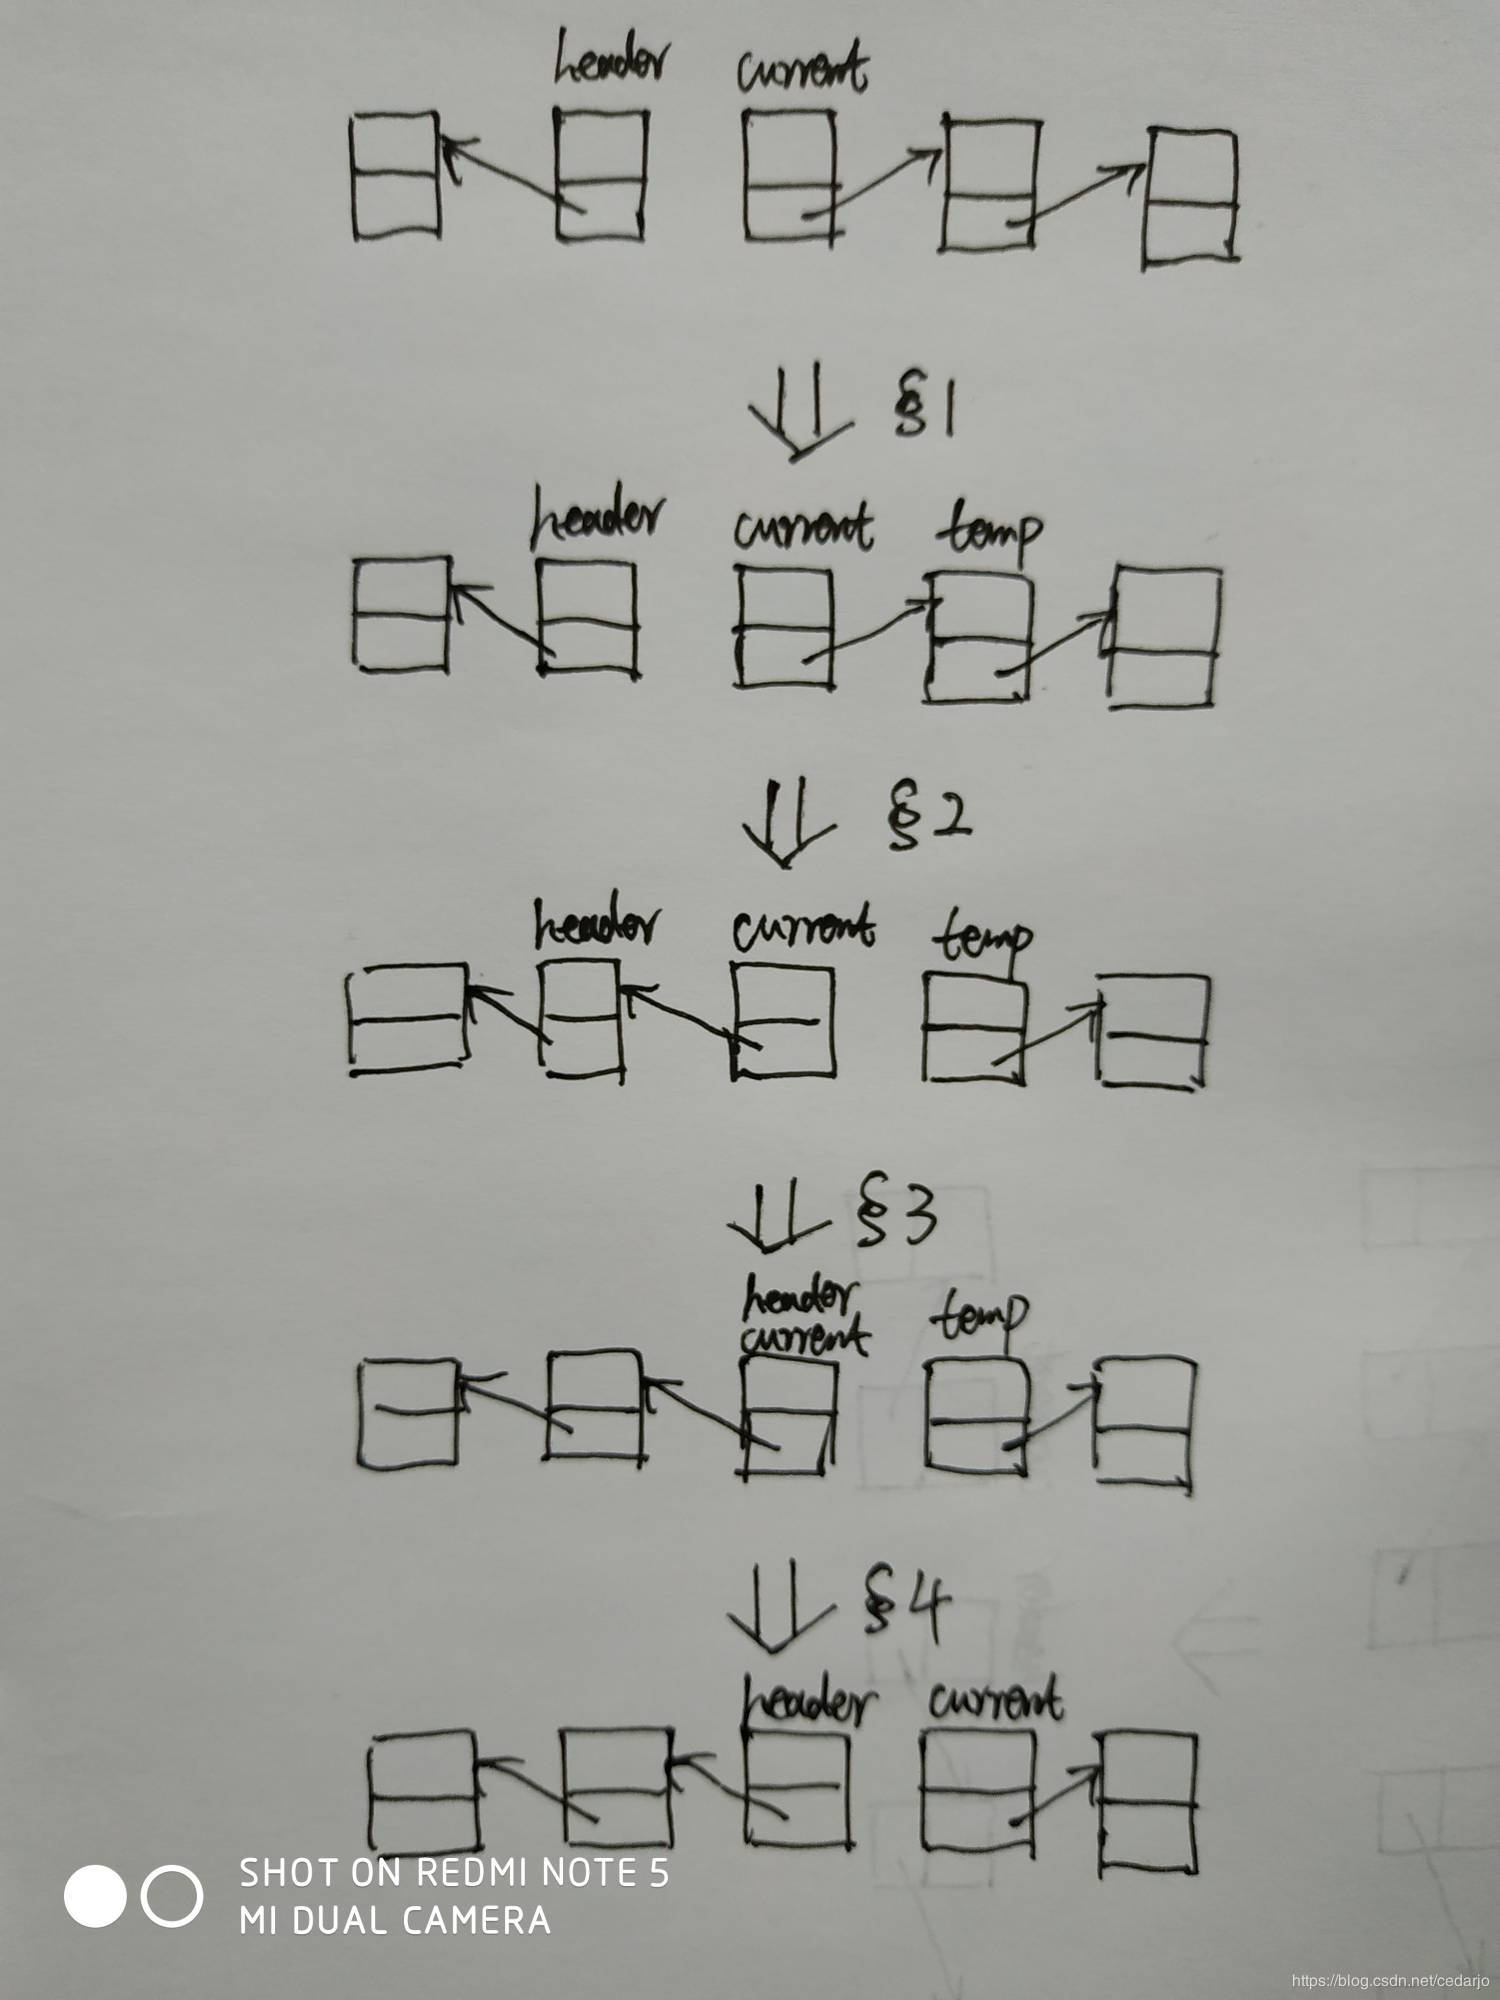 header current
§1
header current temp
§2
header current temp
§3
header temp
current
§4
header current
SHOT ON REDMI NOTE 5
MI DUAL CAMERA
https://blog.csdn.net/cedarjo